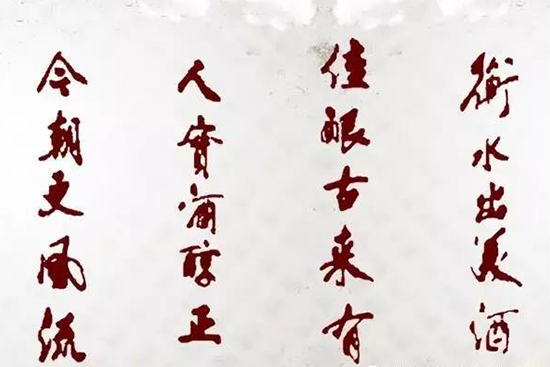 衡水出美酒
佳酿古来有
人實酒醇正
今朝更風流